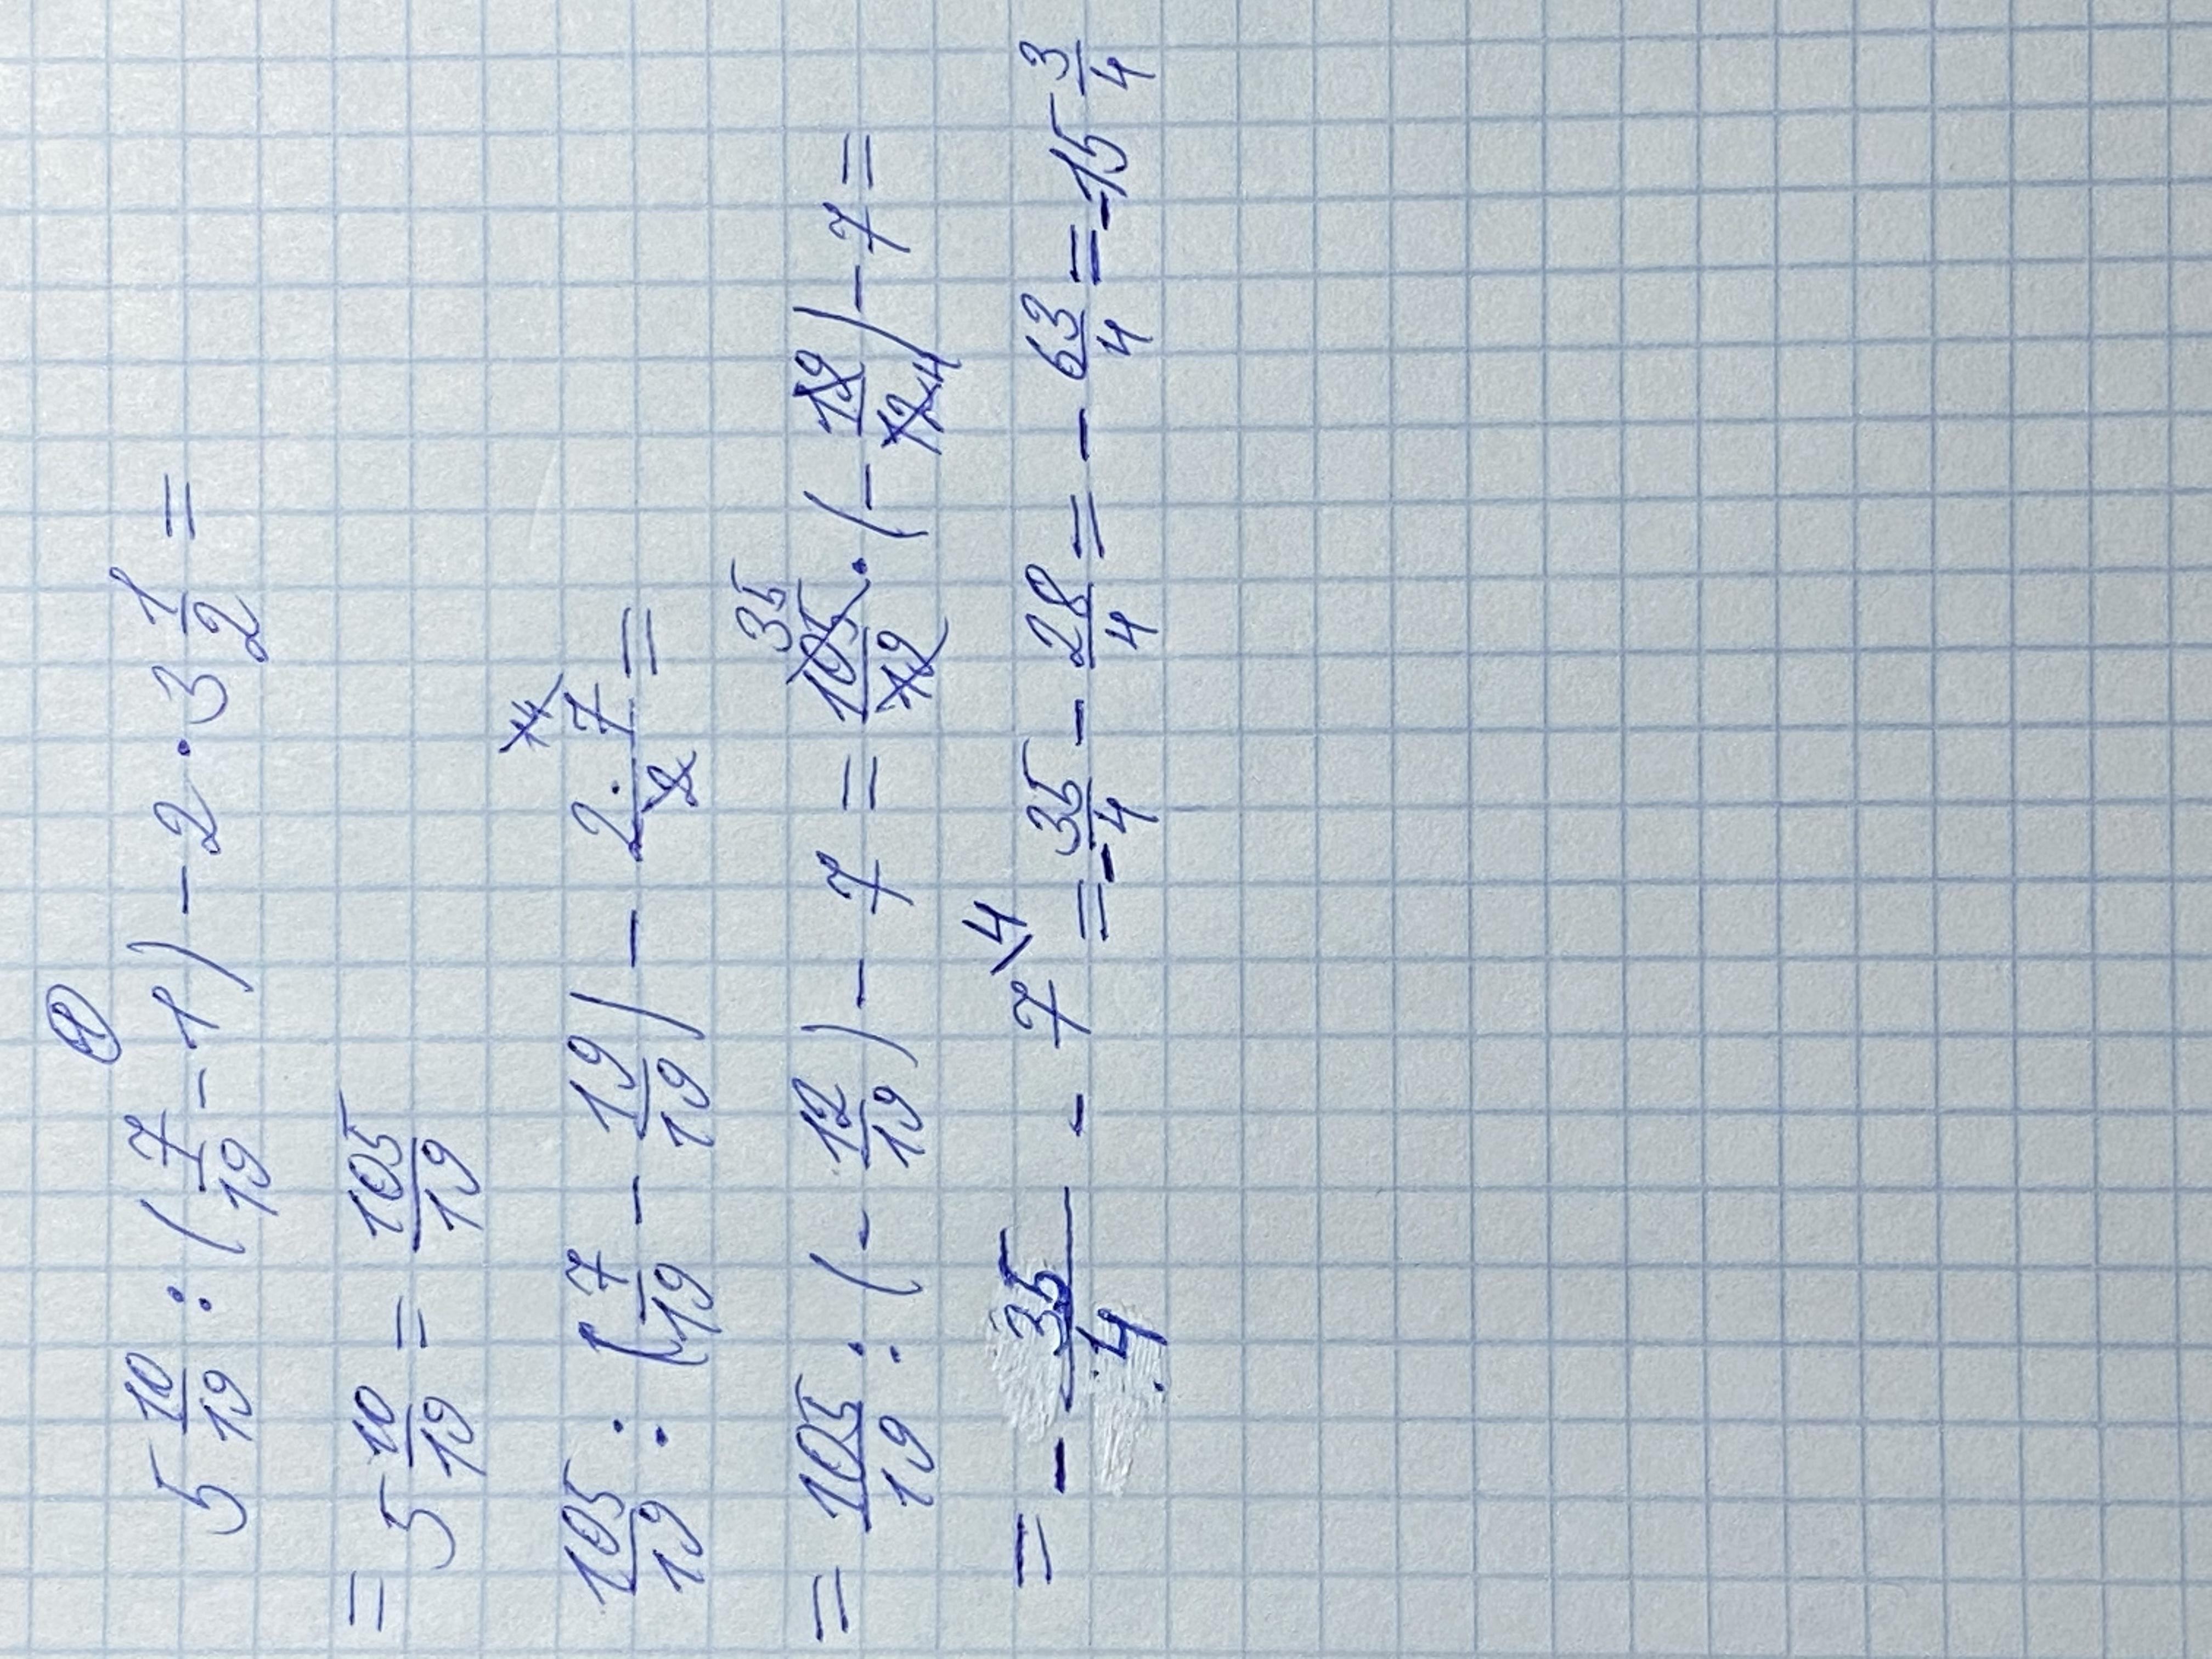 ①
5 10/19 : (7/19 - 1) - 2 · 3 1/2 =
= 5 10/19 = 105/19
105/19 : (7/19 - 19/19) - 2 · 7/2 =
= 105/19 : (- 12/19) - 7 = 35 105/19 · (- 19/12 4) - 7 =
= - 35/4 - 7 \4 = - 35/4 - 28/4 = - 63/4 = -15 3/4